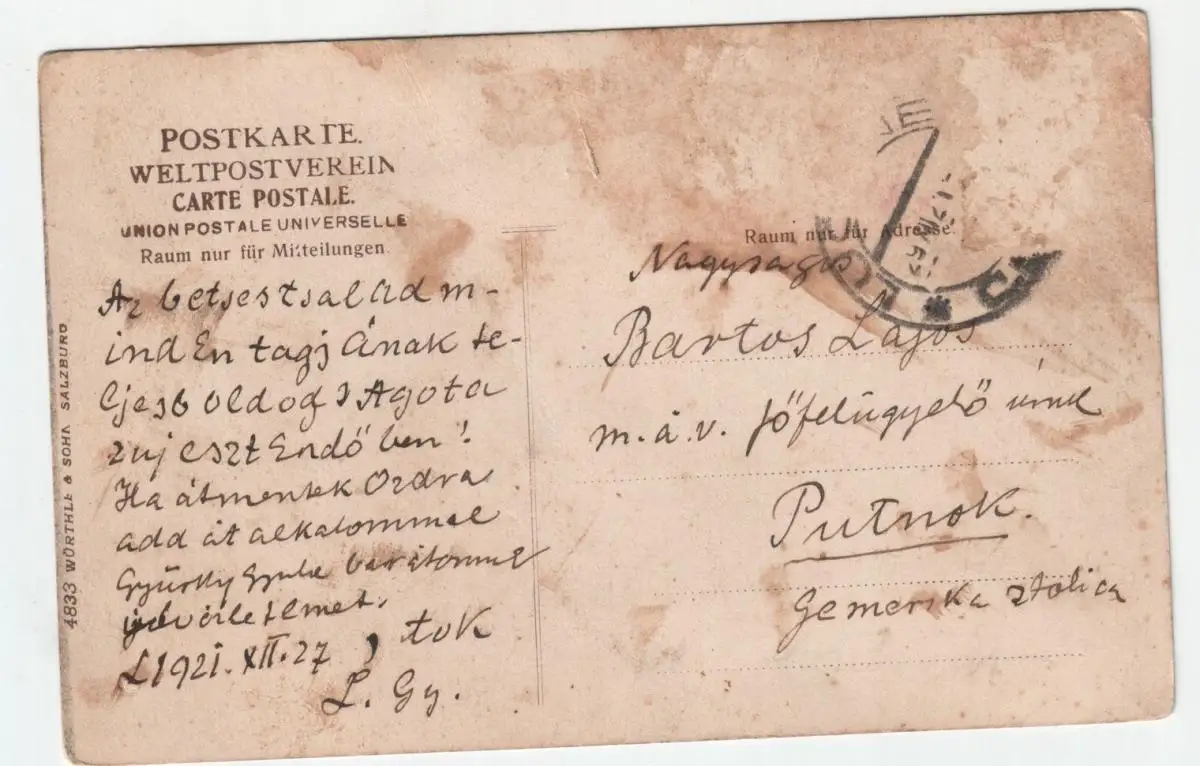 POSTKARTE.
WELTPOSTVEREIN
CARTE POSTALE.
UNION POSTALE UNIVERSELLE
Raum nur für Mitteilungen.
Az betses tsalád m-
ind En tagj Ának te-
ljes boldog s Agota
z uj eszt Endő ben!
Ha átmentek Ozdra
add át alkalommal
Gyürky Gyula barátomnak
üdvözletemet.
L 1921. XII. 27
, tok
L. Gy.
4833 WÜRTHLE & SOHN SALZBURG
Raum nur für Adresse.
Nagyságos
Bartos Lajos
m.á.v. főfelügyelő úrnak
Putnok.
Gemerska ztolica